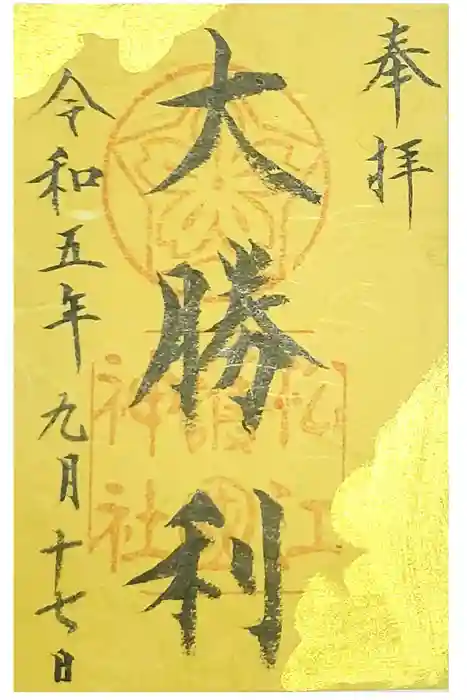 奉拝
大勝利
松江
護國
神社
令和五年九月十七日